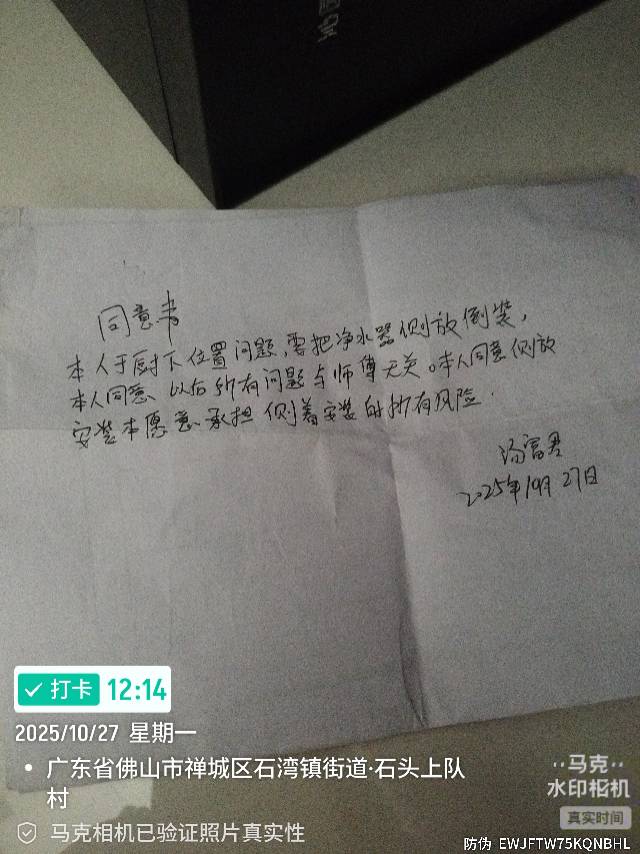 同意书
本人于厨下位置问题,要把净水器侧放倒装,
本人同意、以后所有问题与师傅无关。本人同意侧放
安装本愿意承担侧着安装的所有风险.
汤富君
2025年10月27日
打卡 12:14
2025/10/27 星期一
广东省佛山市禅城区石湾镇街道·石头上队
村
马克相机已验证照片真实性
马克
水印相机
真实时间
防伪 EWJFTW75KQNBHL